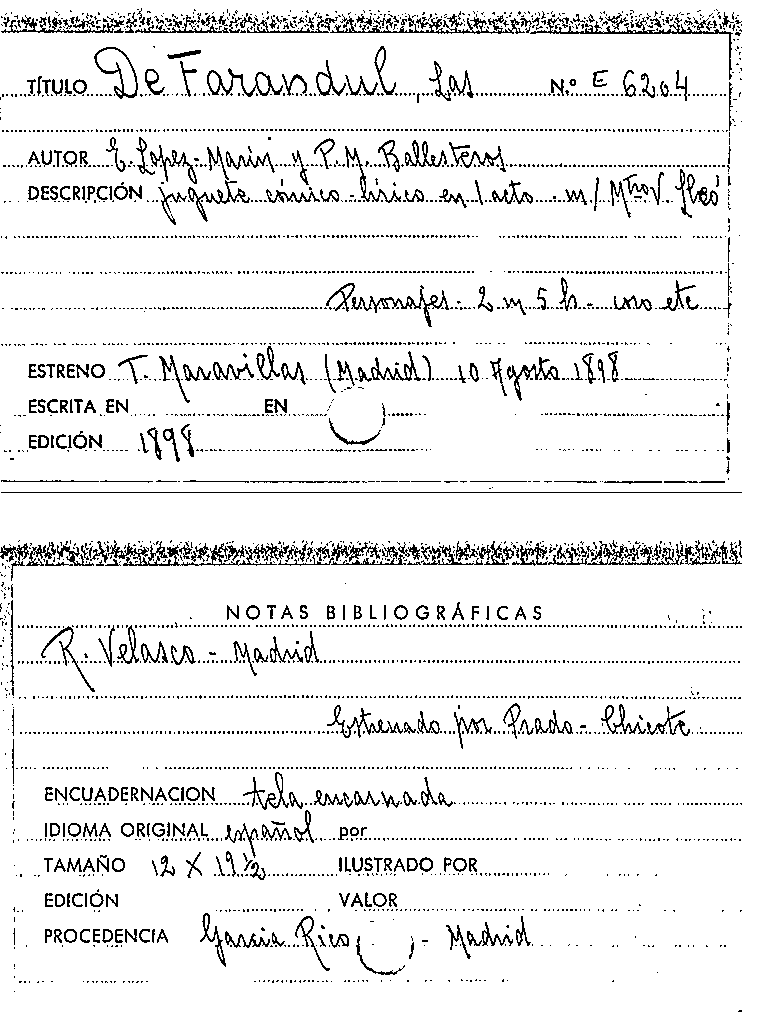 TÍTULO De Farandul, Las N.º E 6204
AUTOR E. Lopez-Marin y P. M. Ballesteros
DESCRIPCIÓN juguete cómico-lírico en 1 acto - m/ Mtro V. Lleó
Personajes - 2 m 5 h - coro etc
ESTRENO T. Maravillas (Madrid) 10 Agosto 1898
ESCRITA EN EN
EDICIÓN 1898
NOTAS BIBLIOGRÁFICAS
R. Velasco - Madrid
Estrenado por Prado - Chicote
ENCUADERNACION tela encarnada
IDIOMA ORIGINAL español por
TAMAÑO 12 X 19 ½ ILUSTRADO POR
EDICIÓN VALOR
PROCEDENCIA Garcia Rico - Madrid